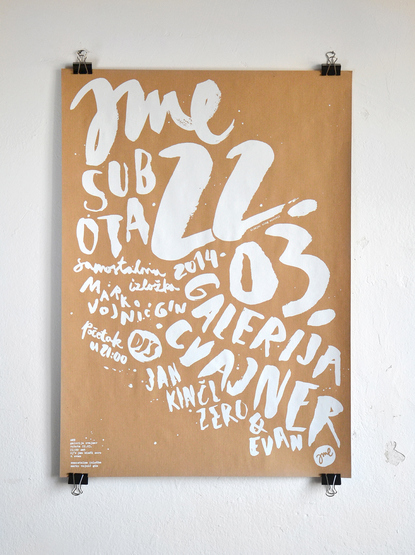 jme
SUB
OTA
22.
03.
2014.
samostalna
izložba
MARKO
VOJNIĆ GIN
početak
u 21:00
GALERIJA
CVAJNER
DJ'S
JAN
KINČL
ZERO
&
EVAN
jme